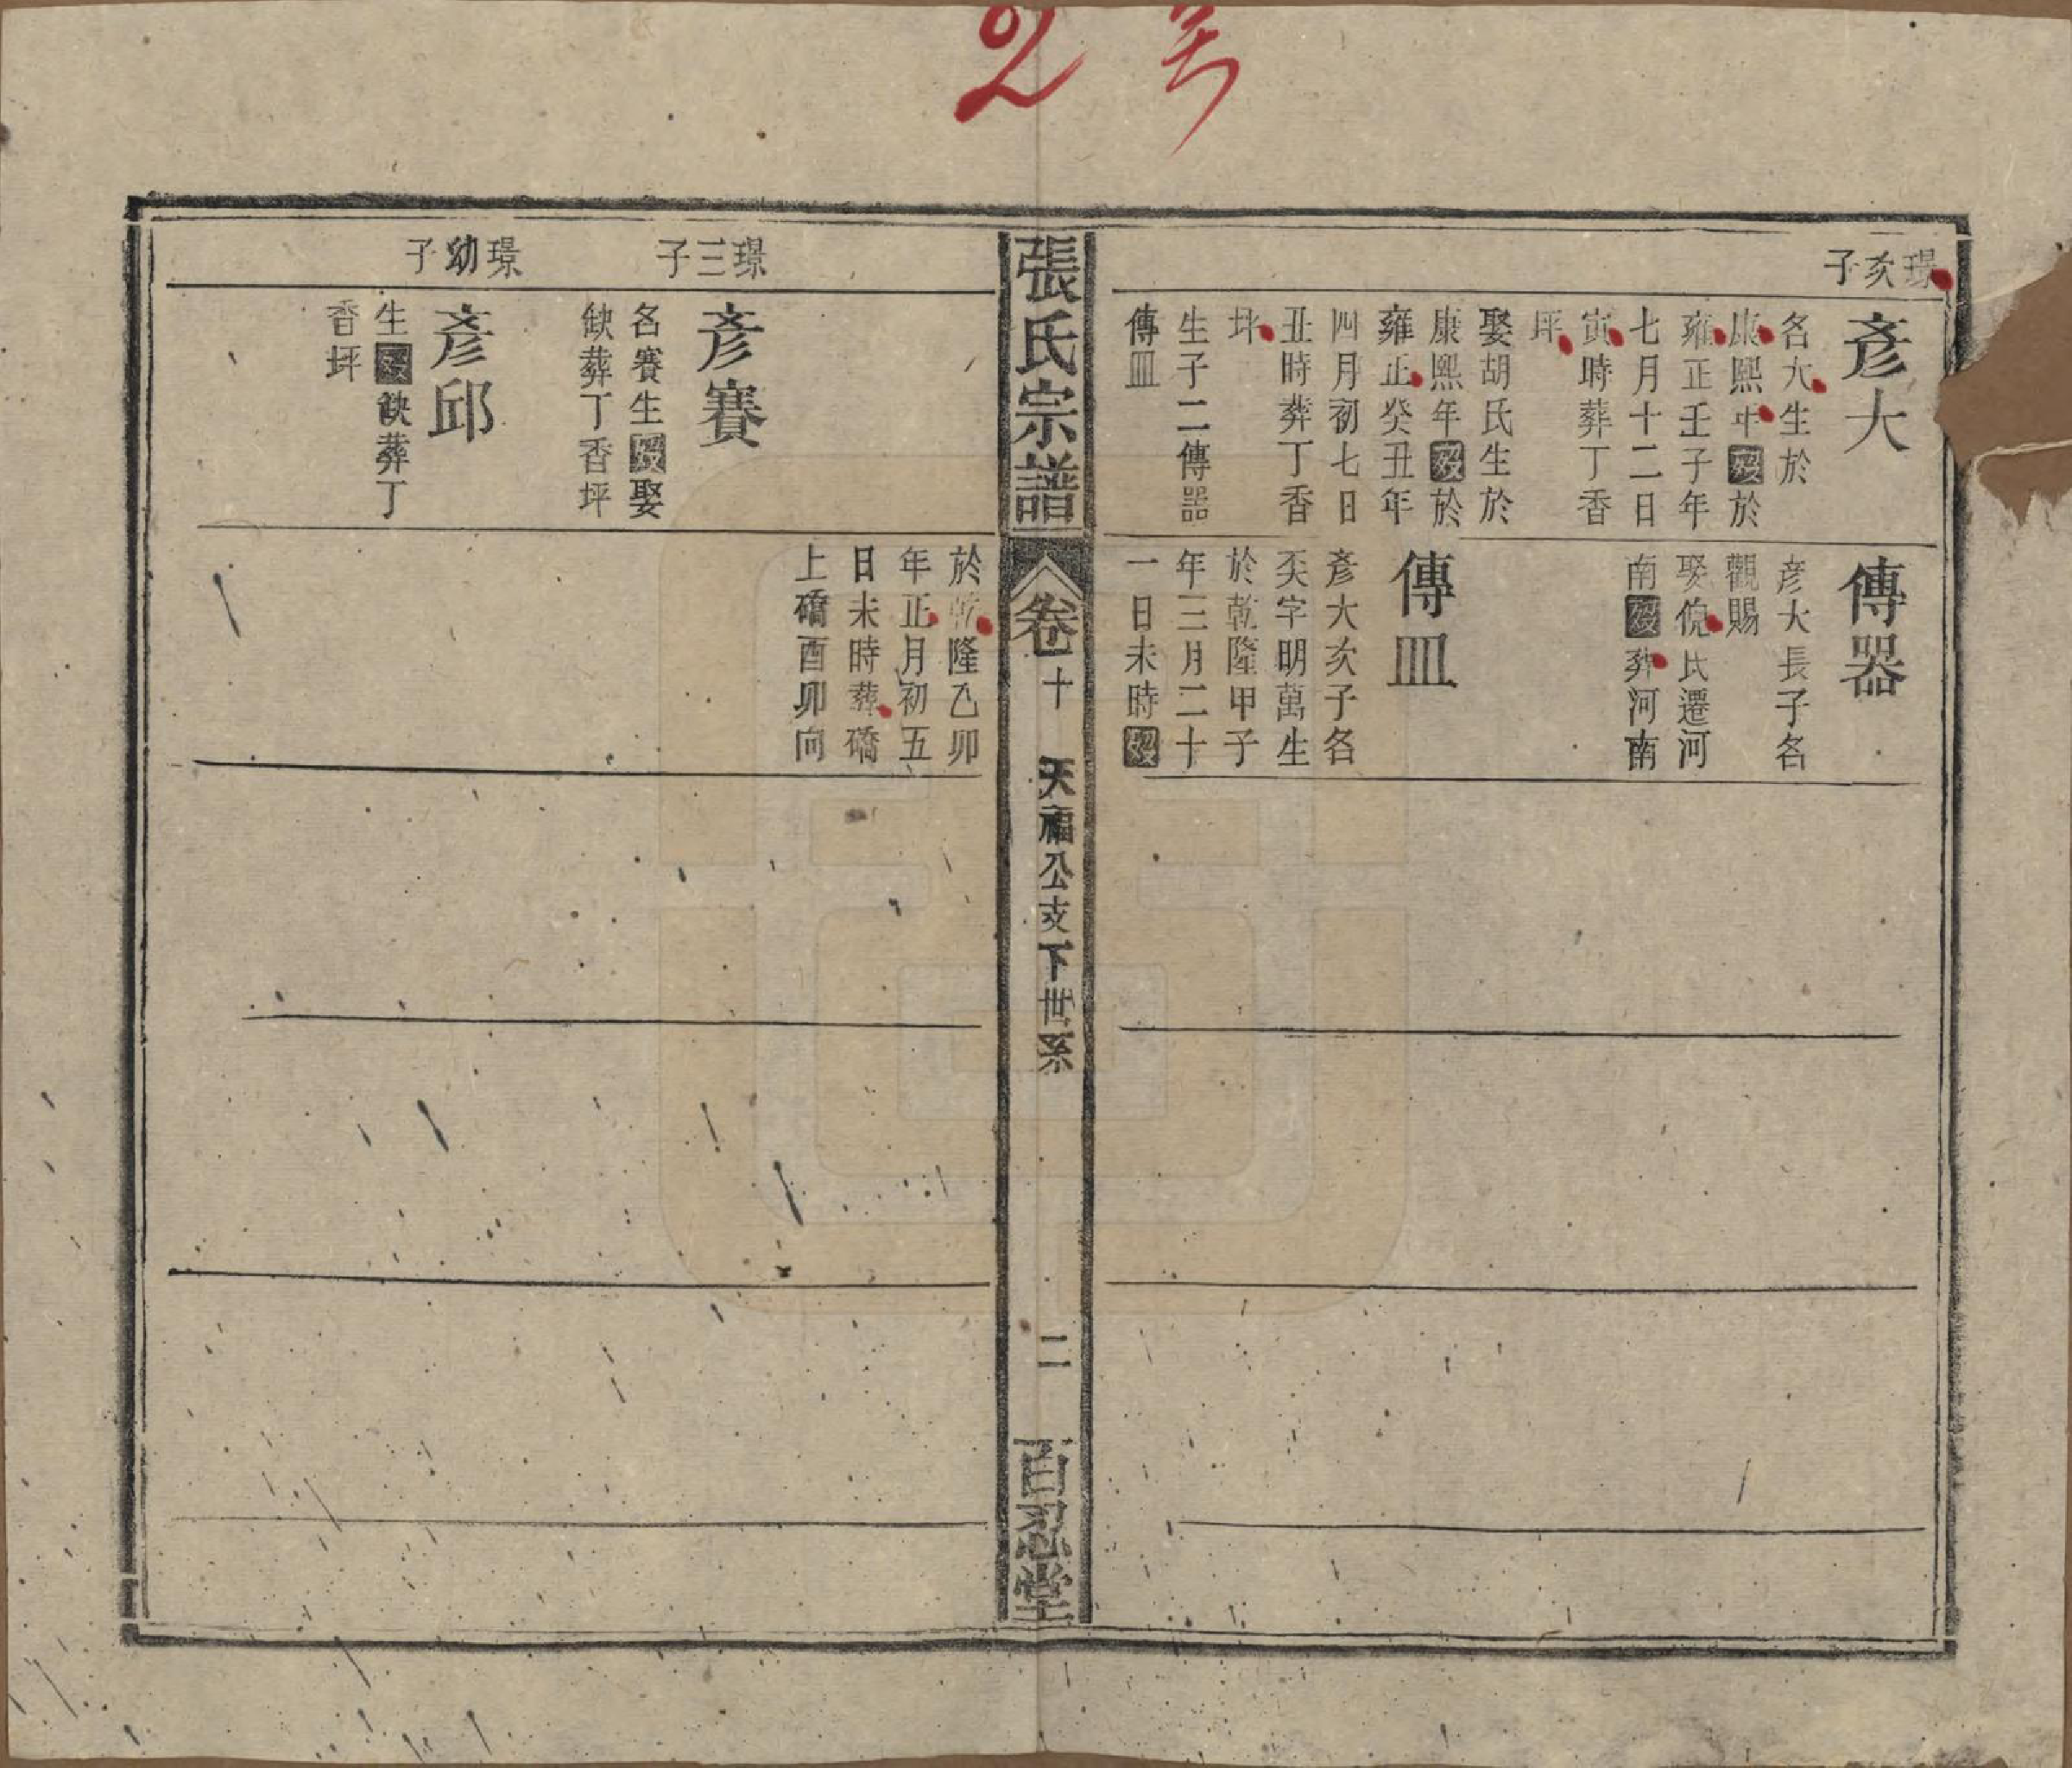 璟次子
彥大
名大生於
康熙年歿於
雍正壬子年
七月十二日
寅時葬丁香
坪
娶胡氏生於
康熙年歿於
雍正癸丑年
四月初七日
丑時葬丁香
坪
生子二傳器
傳皿
傳器
彥大長子名
觀賜
娶倪氏遷河
南歿葬河南
傳皿
彥大次子名
天字明萬生
於乾隆甲子
年三月二十
一日未時歿
張氏宗譜
卷十
天福公支下世系
二
百忍堂
於乾隆乙卯
年正月初五
日未時葬礄
上礄酉卯向
璟三子
彥賽
名賽生歿娶
缺葬丁香坪
璟幼子
彥邱
生歿缺葬丁
香坪